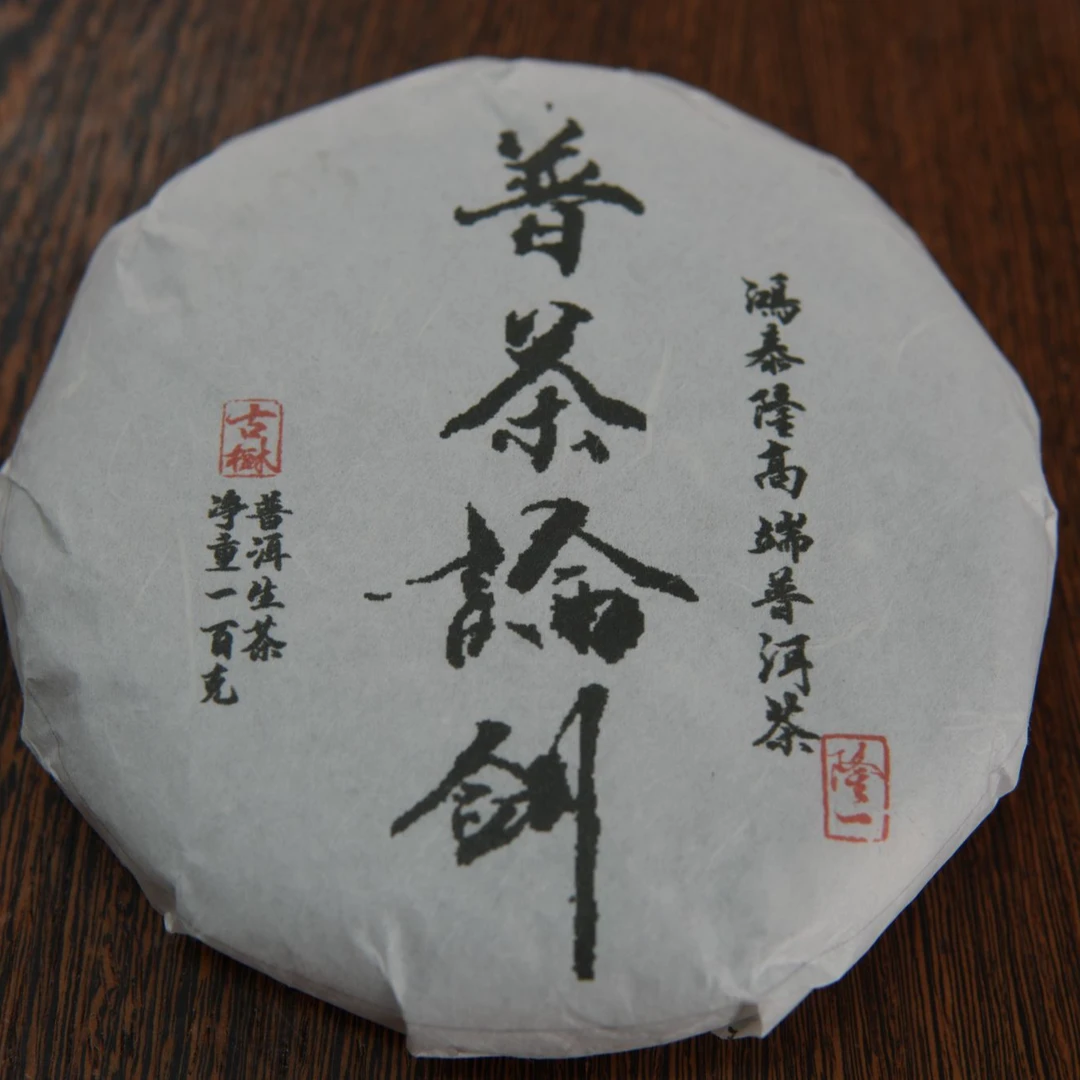 鴻泰隆高端普洱茶
隆一
普茶論劍
古樹
普洱生茶
净重一百克